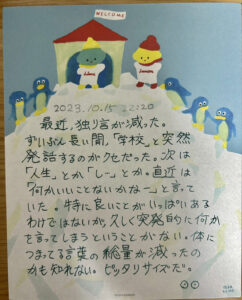 WELCOME
2023.10.15 22:20
最近、独り言が減った。
ずいぶん長い間、「学校」と突然
発話するのがクセだった。次は
「人生」とか「しー」とか。直近は
「何かいいことないかなー」と言って
いた。特に良いことがいっぱいある
わけではないが、久しく突発的に何か
を言ってしまうということがない。体に
つまってる言葉の総量が減ったの
かも知れない。ピッタリサイズだ。